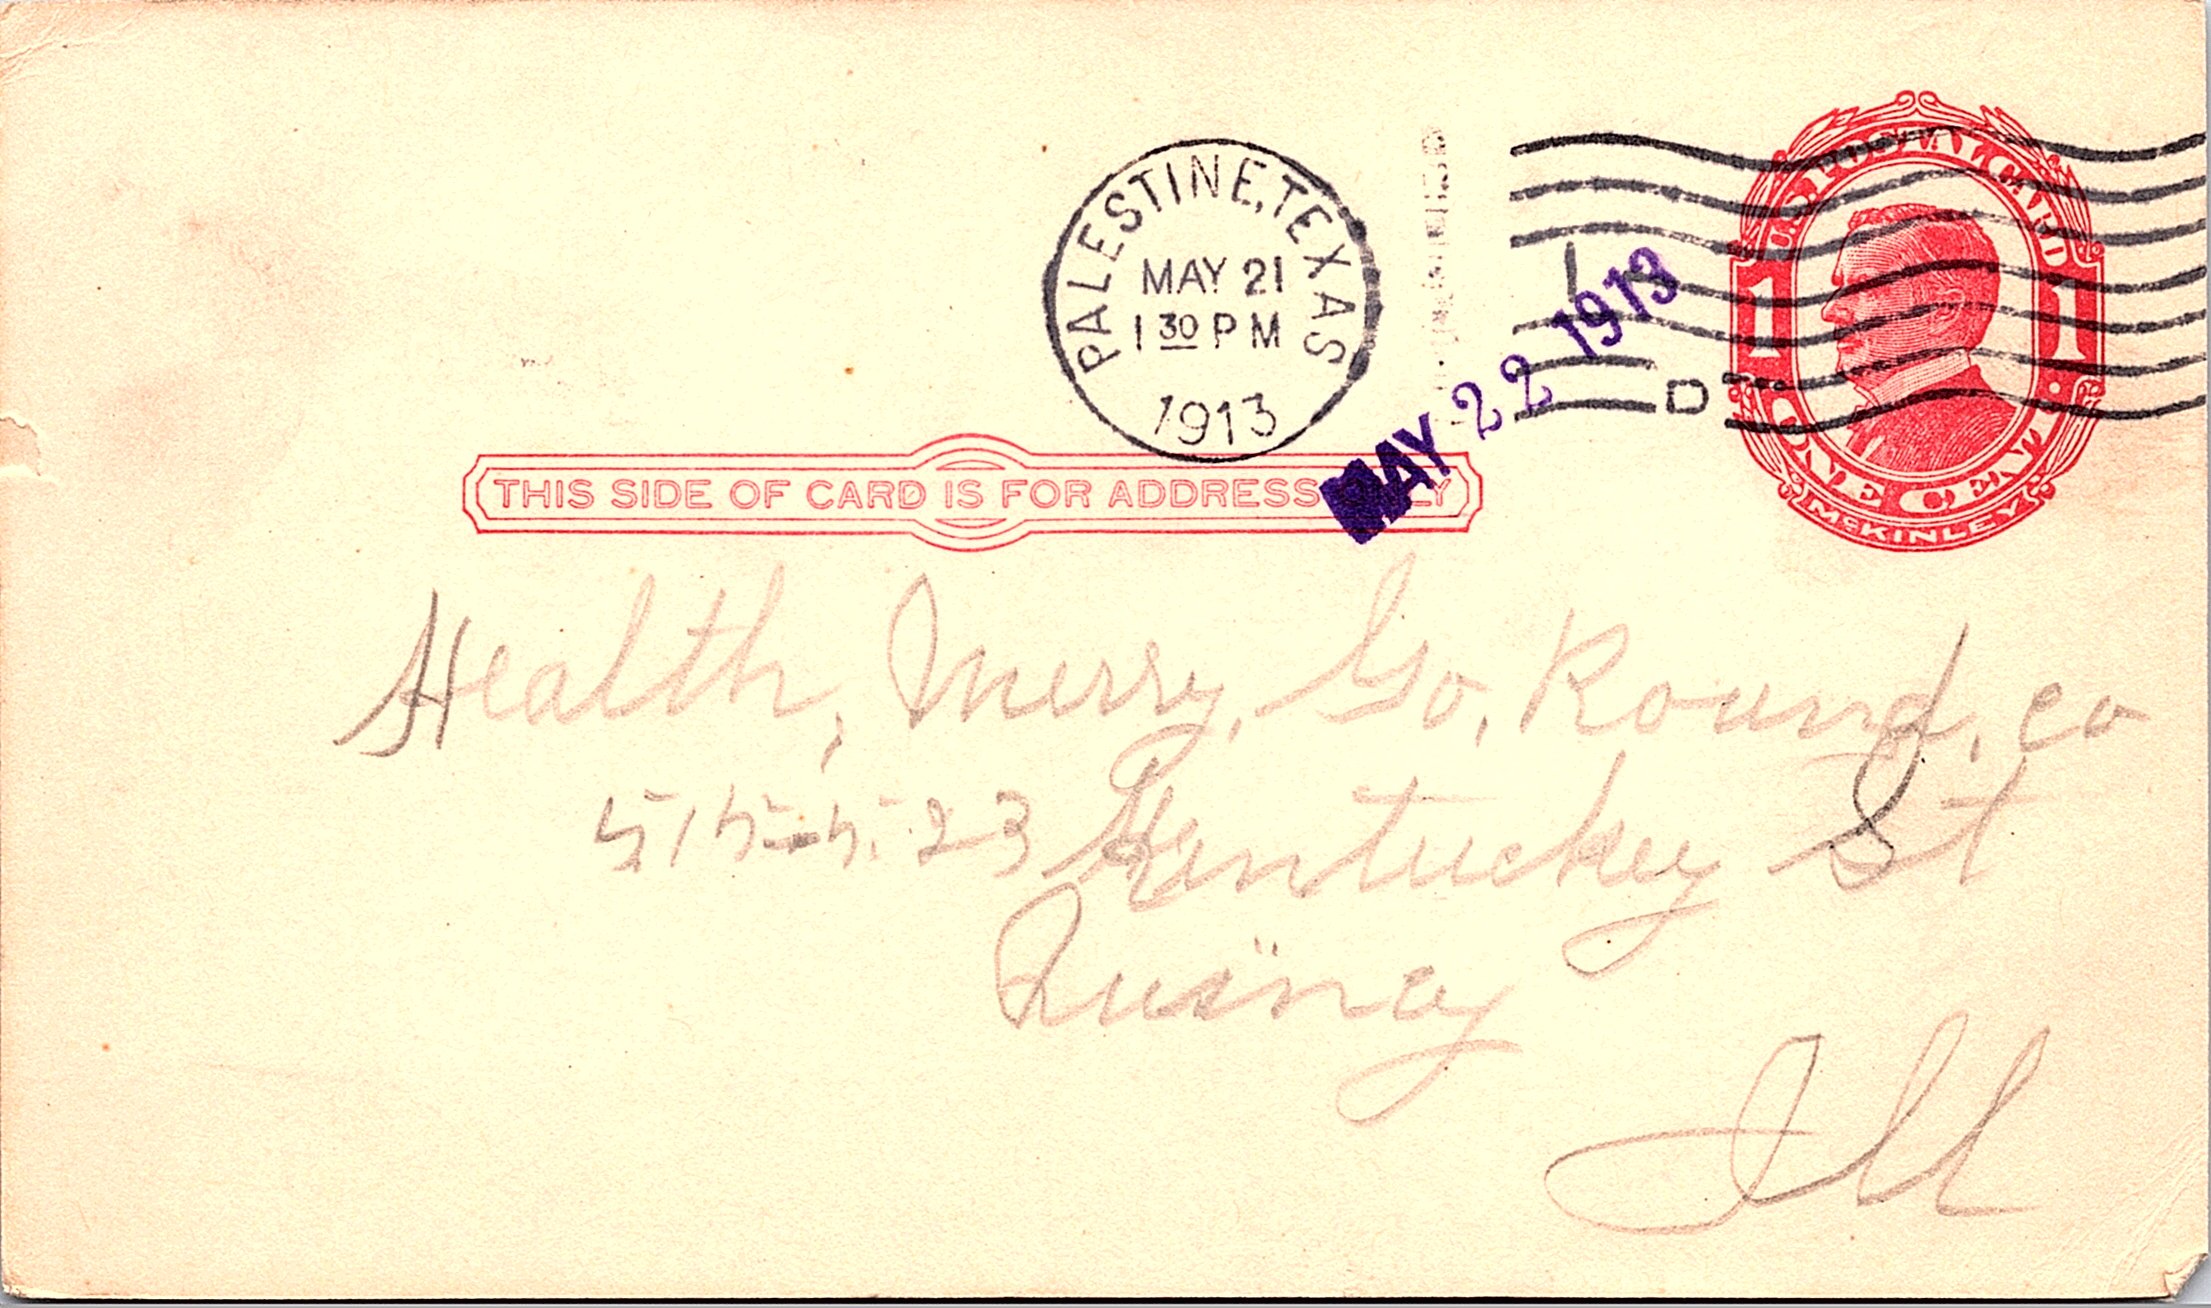 PALESTINE, TEXAS
MAY 21
1 30 P M
1913
D
MAY 22 1913
U.S. POSTAL CARD
1 1
ONE CENT
McKINLEY
THIS SIDE OF CARD IS FOR ADDRESS ONLY
Health, Merry, Go, Round, co
515-523 Kentucky St
Quincy
Ill